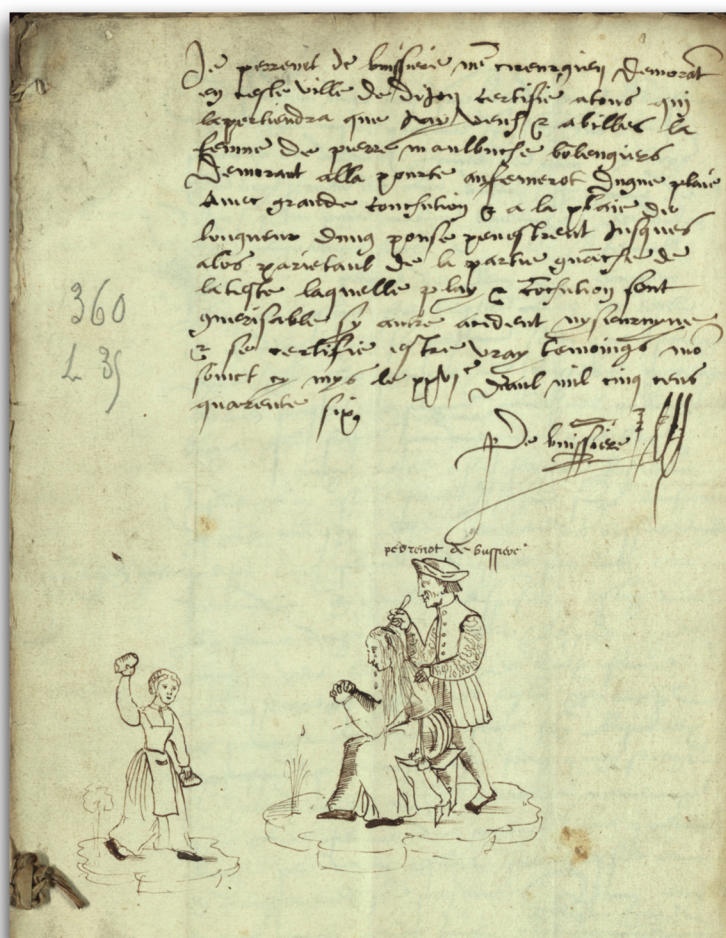 Je perrenot de buissiere me cirurgien demorat
en ceste ville de dijon certifie a tous qui
lapertiendra que Jay veuz & abilles la
femme de pierre maulbuche bolengiers
demorant alla pourte au fermerot dugne plaie
avec grande contusion & a la plaie de
longueur dung ponse penestrent Jusques
a los parietaul de la partie gauche de
la teste laquelle play & cotusion sont
guerisable sy autre acident ny seurvyne
& se certifie estre vray temoings mo
sinet cy mys le xxvie davul mil cinq cens
quarente six
De buissiere
perrenot de bussiere
360
L 35